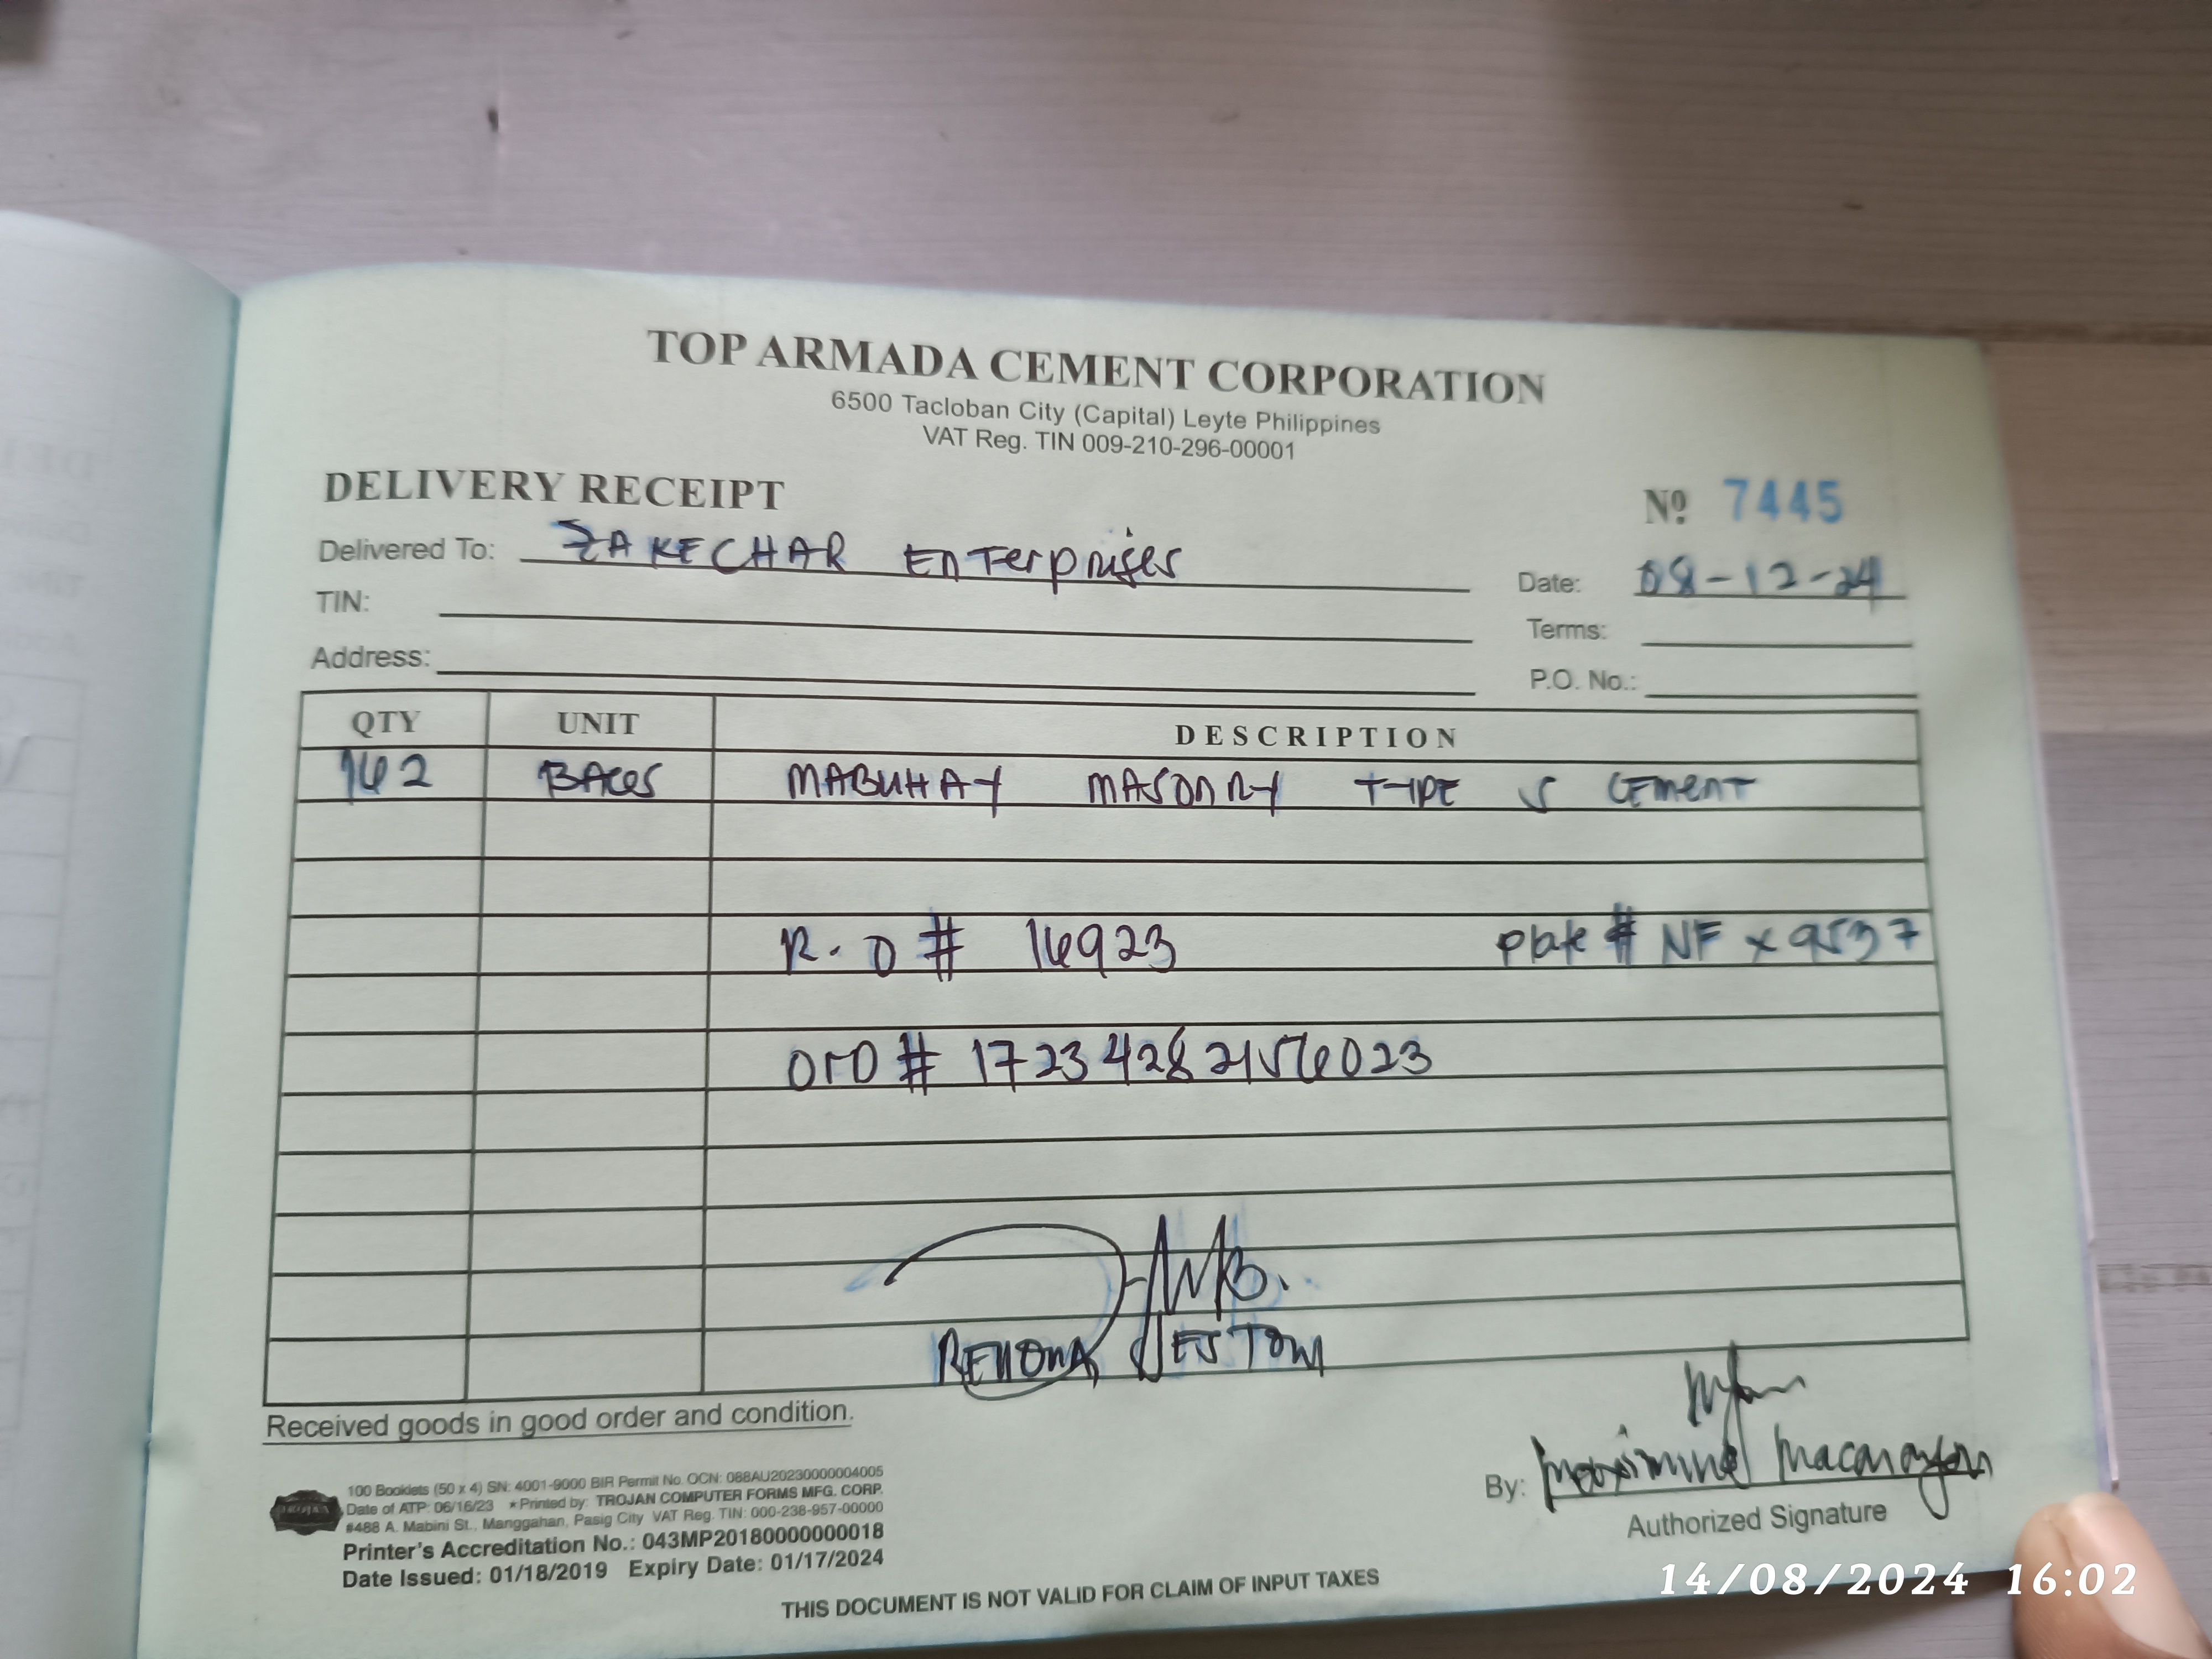 TOP ARMADA CEMENT CORPORATION
6500 Tacloban City (Capital) Leyte Philippines
VAT Reg. TIN 009-210-296-00001
DELIVERY RECEIPT
Nº 7445
Delivered To: ZAKECHAR Enterprises
Date: 08-12-24
TIN:
Terms:
Address:
P.O. No.:
QTY UNIT DESCRIPTION
162 BAGS MABUHAY MASONRY TYPE S CEMENT
R.O # 16923 Plate # NFX9537
ORD # 17234282156023
JESTONI
Received goods in good order and condition.
100 Booklets (50 x 4) SN: 4001-9000 BIR Permit No. OCN: 088AU20230000004005
Date of ATP: 06/16/23 * Printed by: TROJAN COMPUTER FORMS MFG. CORP.
#488 A. Mabini St., Manggahan, Pasig City VAT Reg. TIN: 000-238-957-00000
Printer's Accreditation No.: 043MP20180000000018
Date Issued: 01/18/2019 Expiry Date: 01/17/2024
TROJAN
By:
Authorized Signature
THIS DOCUMENT IS NOT VALID FOR CLAIM OF INPUT TAXES
14/08/2024 16:02